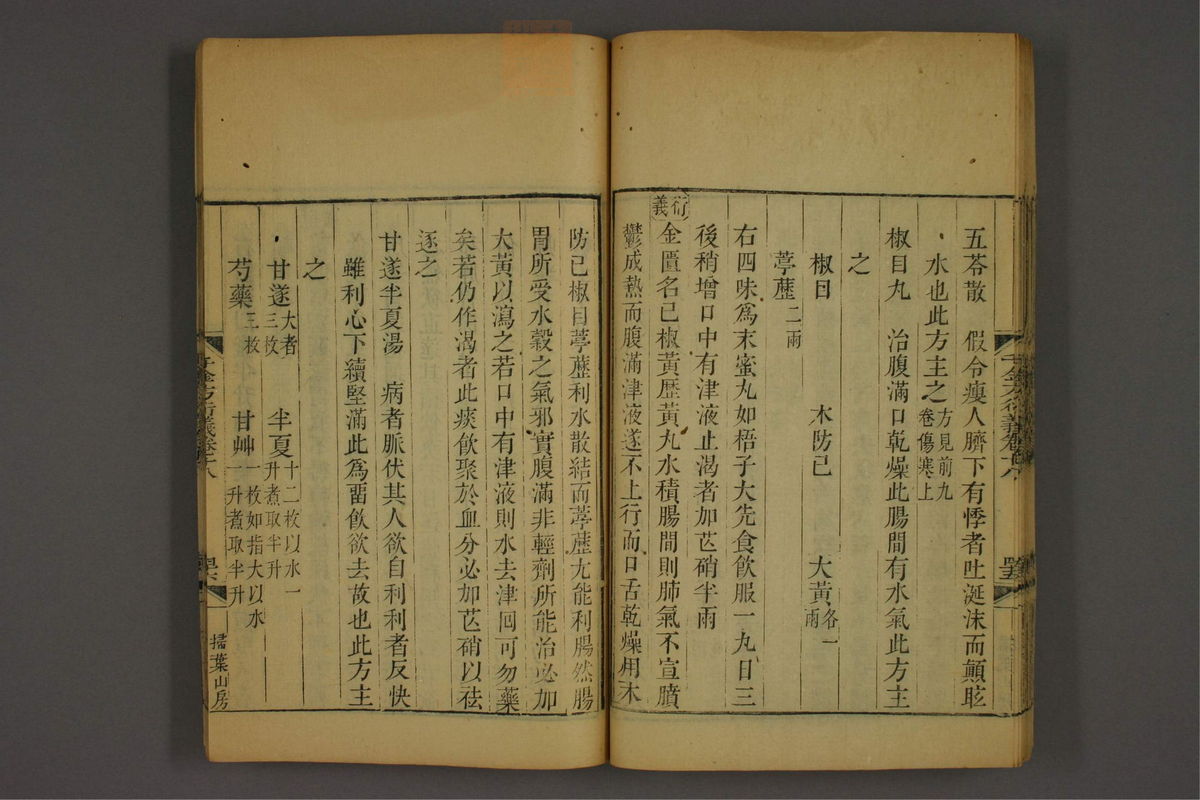 五苓散　假令瘦人臍下有悸者吐涎沫而顚眩
水也此方主之方見前九卷傷寒上
椒目丸　治腹滿口乾燥此腸間有水氣此方主
之
椒目　木防己　大黃各一兩
葶藶二兩
右四味爲末蜜丸如梧子大先食飮服一九日三
後稍增口中有津液止渴者加芒硝半兩
衍義金匱名己椒黃歷黃丸水積腸間則肺氣不宣膹
鬱成熱而腹滿津液遂不上行而口舌乾燥用木
防己椒目葶藶利水散結而葶藶尤能利腸然腸
胃所受水穀之氣邪實腹滿非輕劑所能治必加
大黃以瀉之若口中有津液則水去津囘可勿藥
矣若仍作渴者此痰飮聚於血分必加芒硝以祛
逐之
甘遂半夏湯　病者脈伏其人欲自利利者反快
雖利心下續堅滿此爲畱飮欲去故也此方主
之
甘遂大者三枚　半夏十二枚以水一升煮取半升
芍藥三枚　甘艸一枚如指大以水一升煮取半升
千金方衍義卷十八
掃葉山房